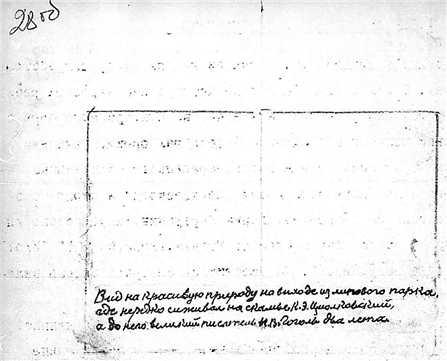 28 об
Вид на красивую природу на выходе из липового парка,
где нередко сиживал на скамье К.Э. Циолковский,
а до него великий писатель Н.В. Гоголь два лета.